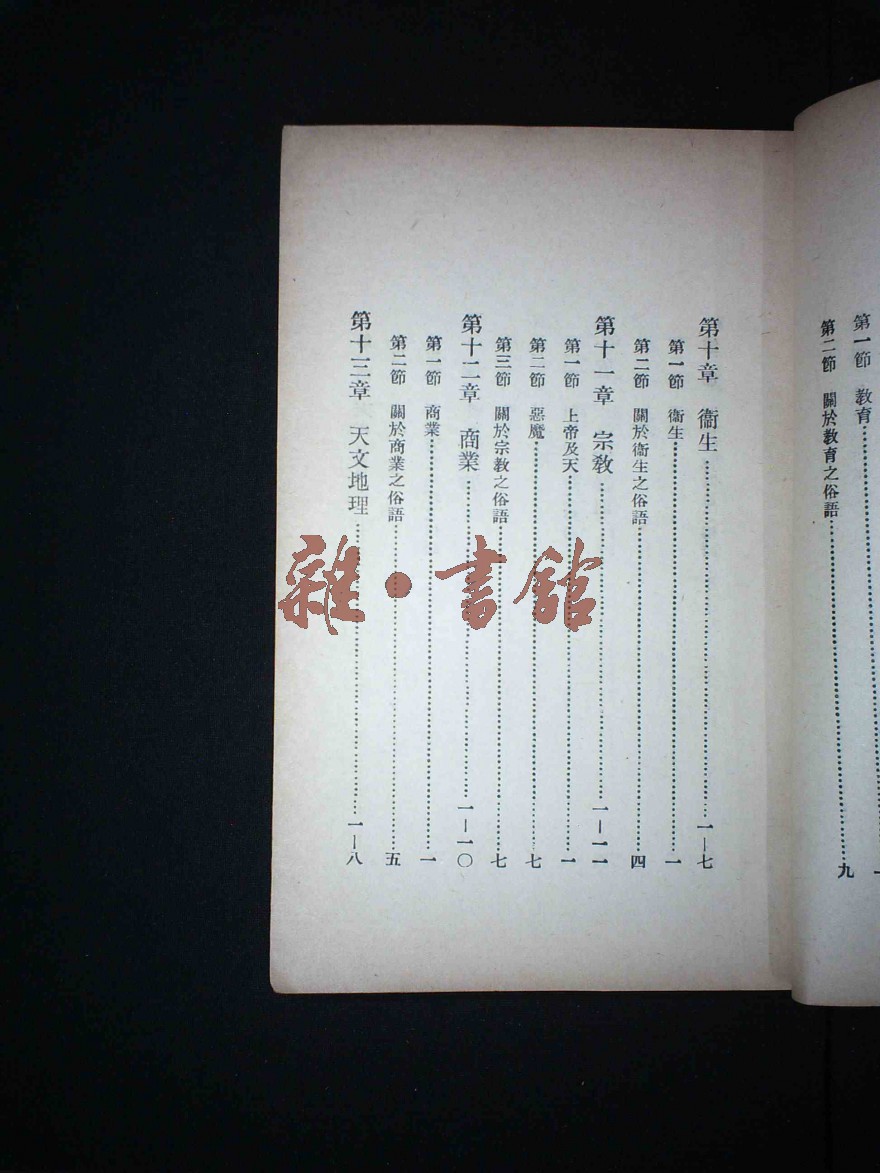 第一節 教育
第二節 關於教育之俗語……九
第十章 衞生……一—七
第一節 衞生……一
第二節 關於衞生之俗語……四
第十一章 宗敎……一—一一
第一節 上帝及天……一
第二節 惡魔……七
第三節 關於宗教之俗語……七
第十二章 商業……一—一〇
第一節 商業……一
第二節 關於商業之俗語……五
第十三章 天文地理……一—八
雜·書館